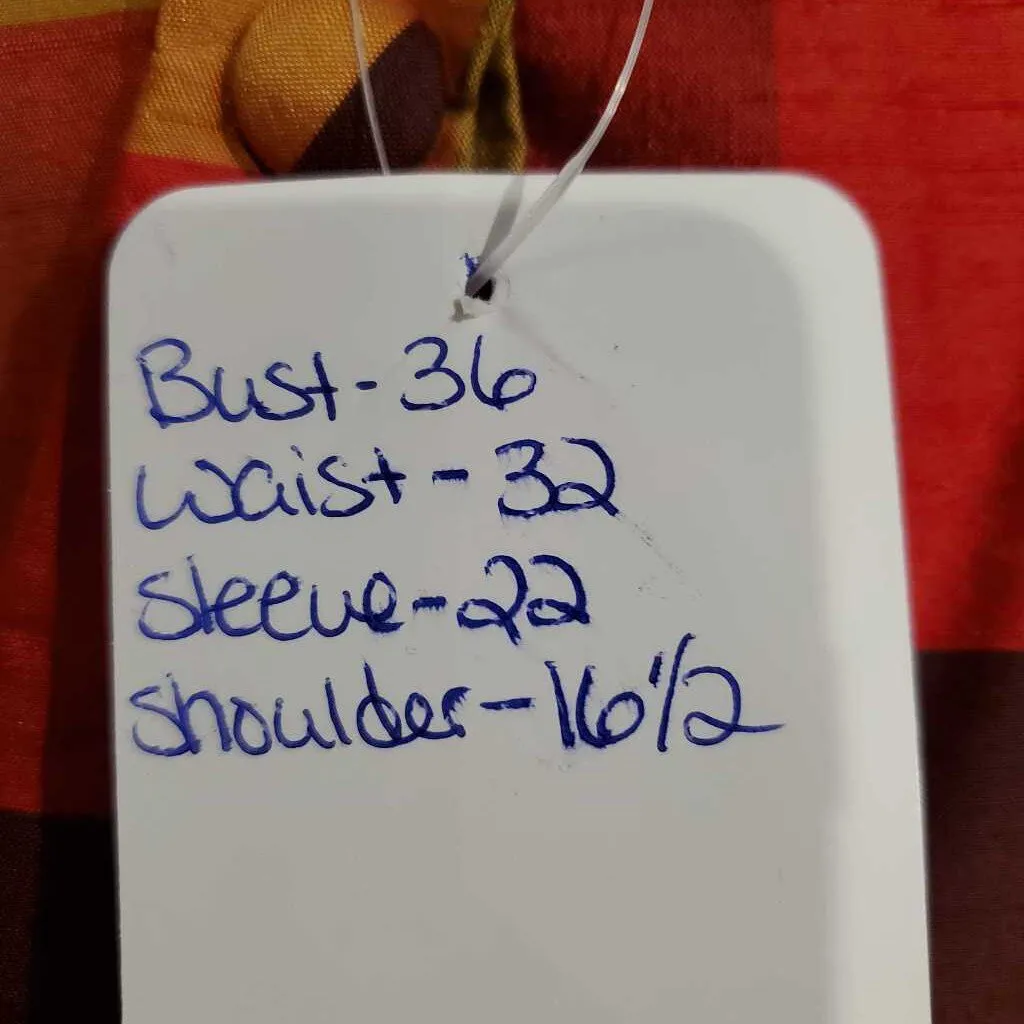 Bust-36
Waist-32
Sleeve-22
Shoulder-16 1/2